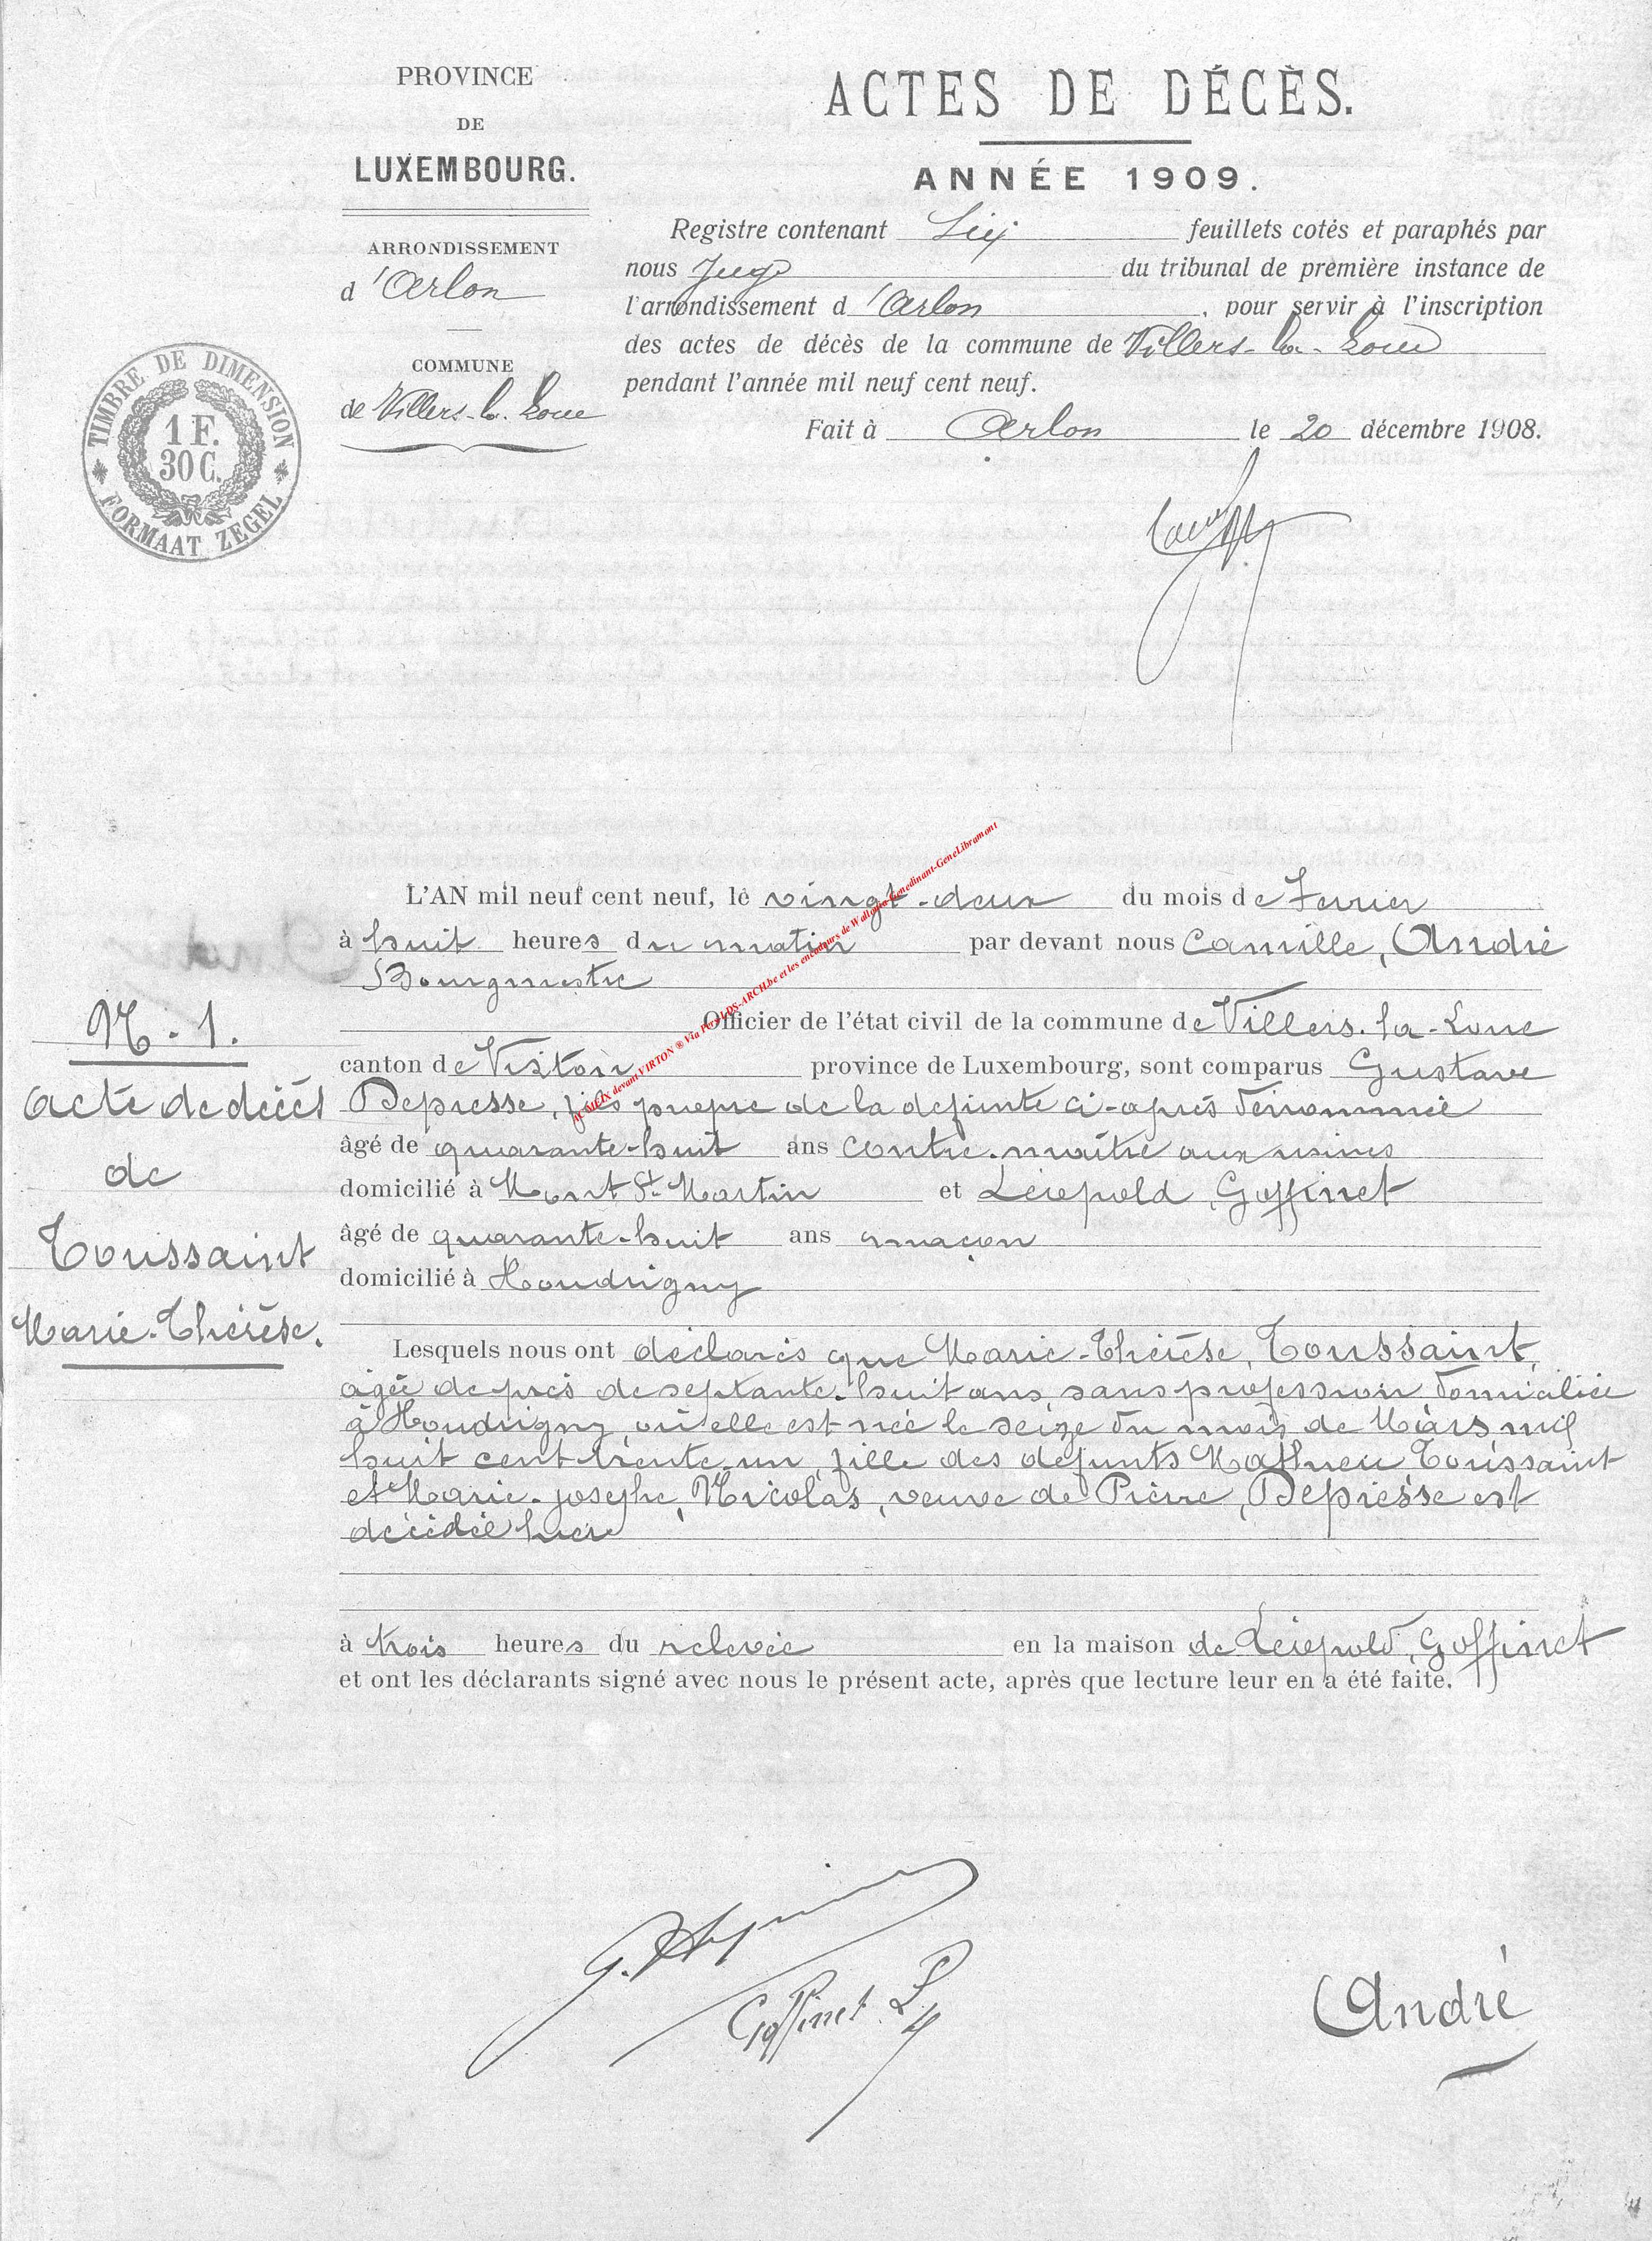 PROVINCE
DE
LUXEMBOURG.
ARRONDISSEMENT
d'Arlon
COMMUNE
de Villers-la-Loue
TIMBRE DE DIMENSION
1 F.
30 C.
FORMAAT ZEGEL
ACTES DE DÉCÈS.
ANNÉE 1909.
Registre contenant Six feuillets cotés et paraphés par
nous Juge du tribunal de première instance de
l'arrondissement d'Arlon, pour servir à l'inscription
des actes de décès de la commune de Villers-la-Loue
pendant l'année mil neuf cent neuf.
Fait à Arlon le 20 décembre 1908.
L'AN mil neuf cent neuf, le vingt-deux du mois de Fevrier
à huit heures du matin par devant nous Camille, André
Bourgmestre
Officier de l'état civil de la commune de Villers-la-Loue
canton de Virton province de Luxembourg, sont comparus Gustave
Depresse, fils propre de la defunte ci-après dénommée
âgé de quarante-huit ans contre-maître aux usines
domicilié à Mont St-Martin et Léopold, Goffinet
âgé de quarante-huit ans maçon
domicilié à Houdrigny
Lesquels nous ont déclarés que Marie-Thérèse, Toussaint,
agée de près de septante-huit ans, sans profession domiciliée
à Houdrigny, où elle est née le seize du mois de Mars mil
huit cent trente-un, fille des defunts Mathieu Toussaint
et Marie-josephe, Nicolas, veuve de Pierre, Depresse est
décédée hier
à trois heures du relevée en la maison de Léopold, Goffinet
et ont les déclarants signé avec nous le présent acte, après que lecture leur en a été faite.
N-1.
Acte de décès
de
Toussaint
Marie-Thérèse.
Goffinet L
André